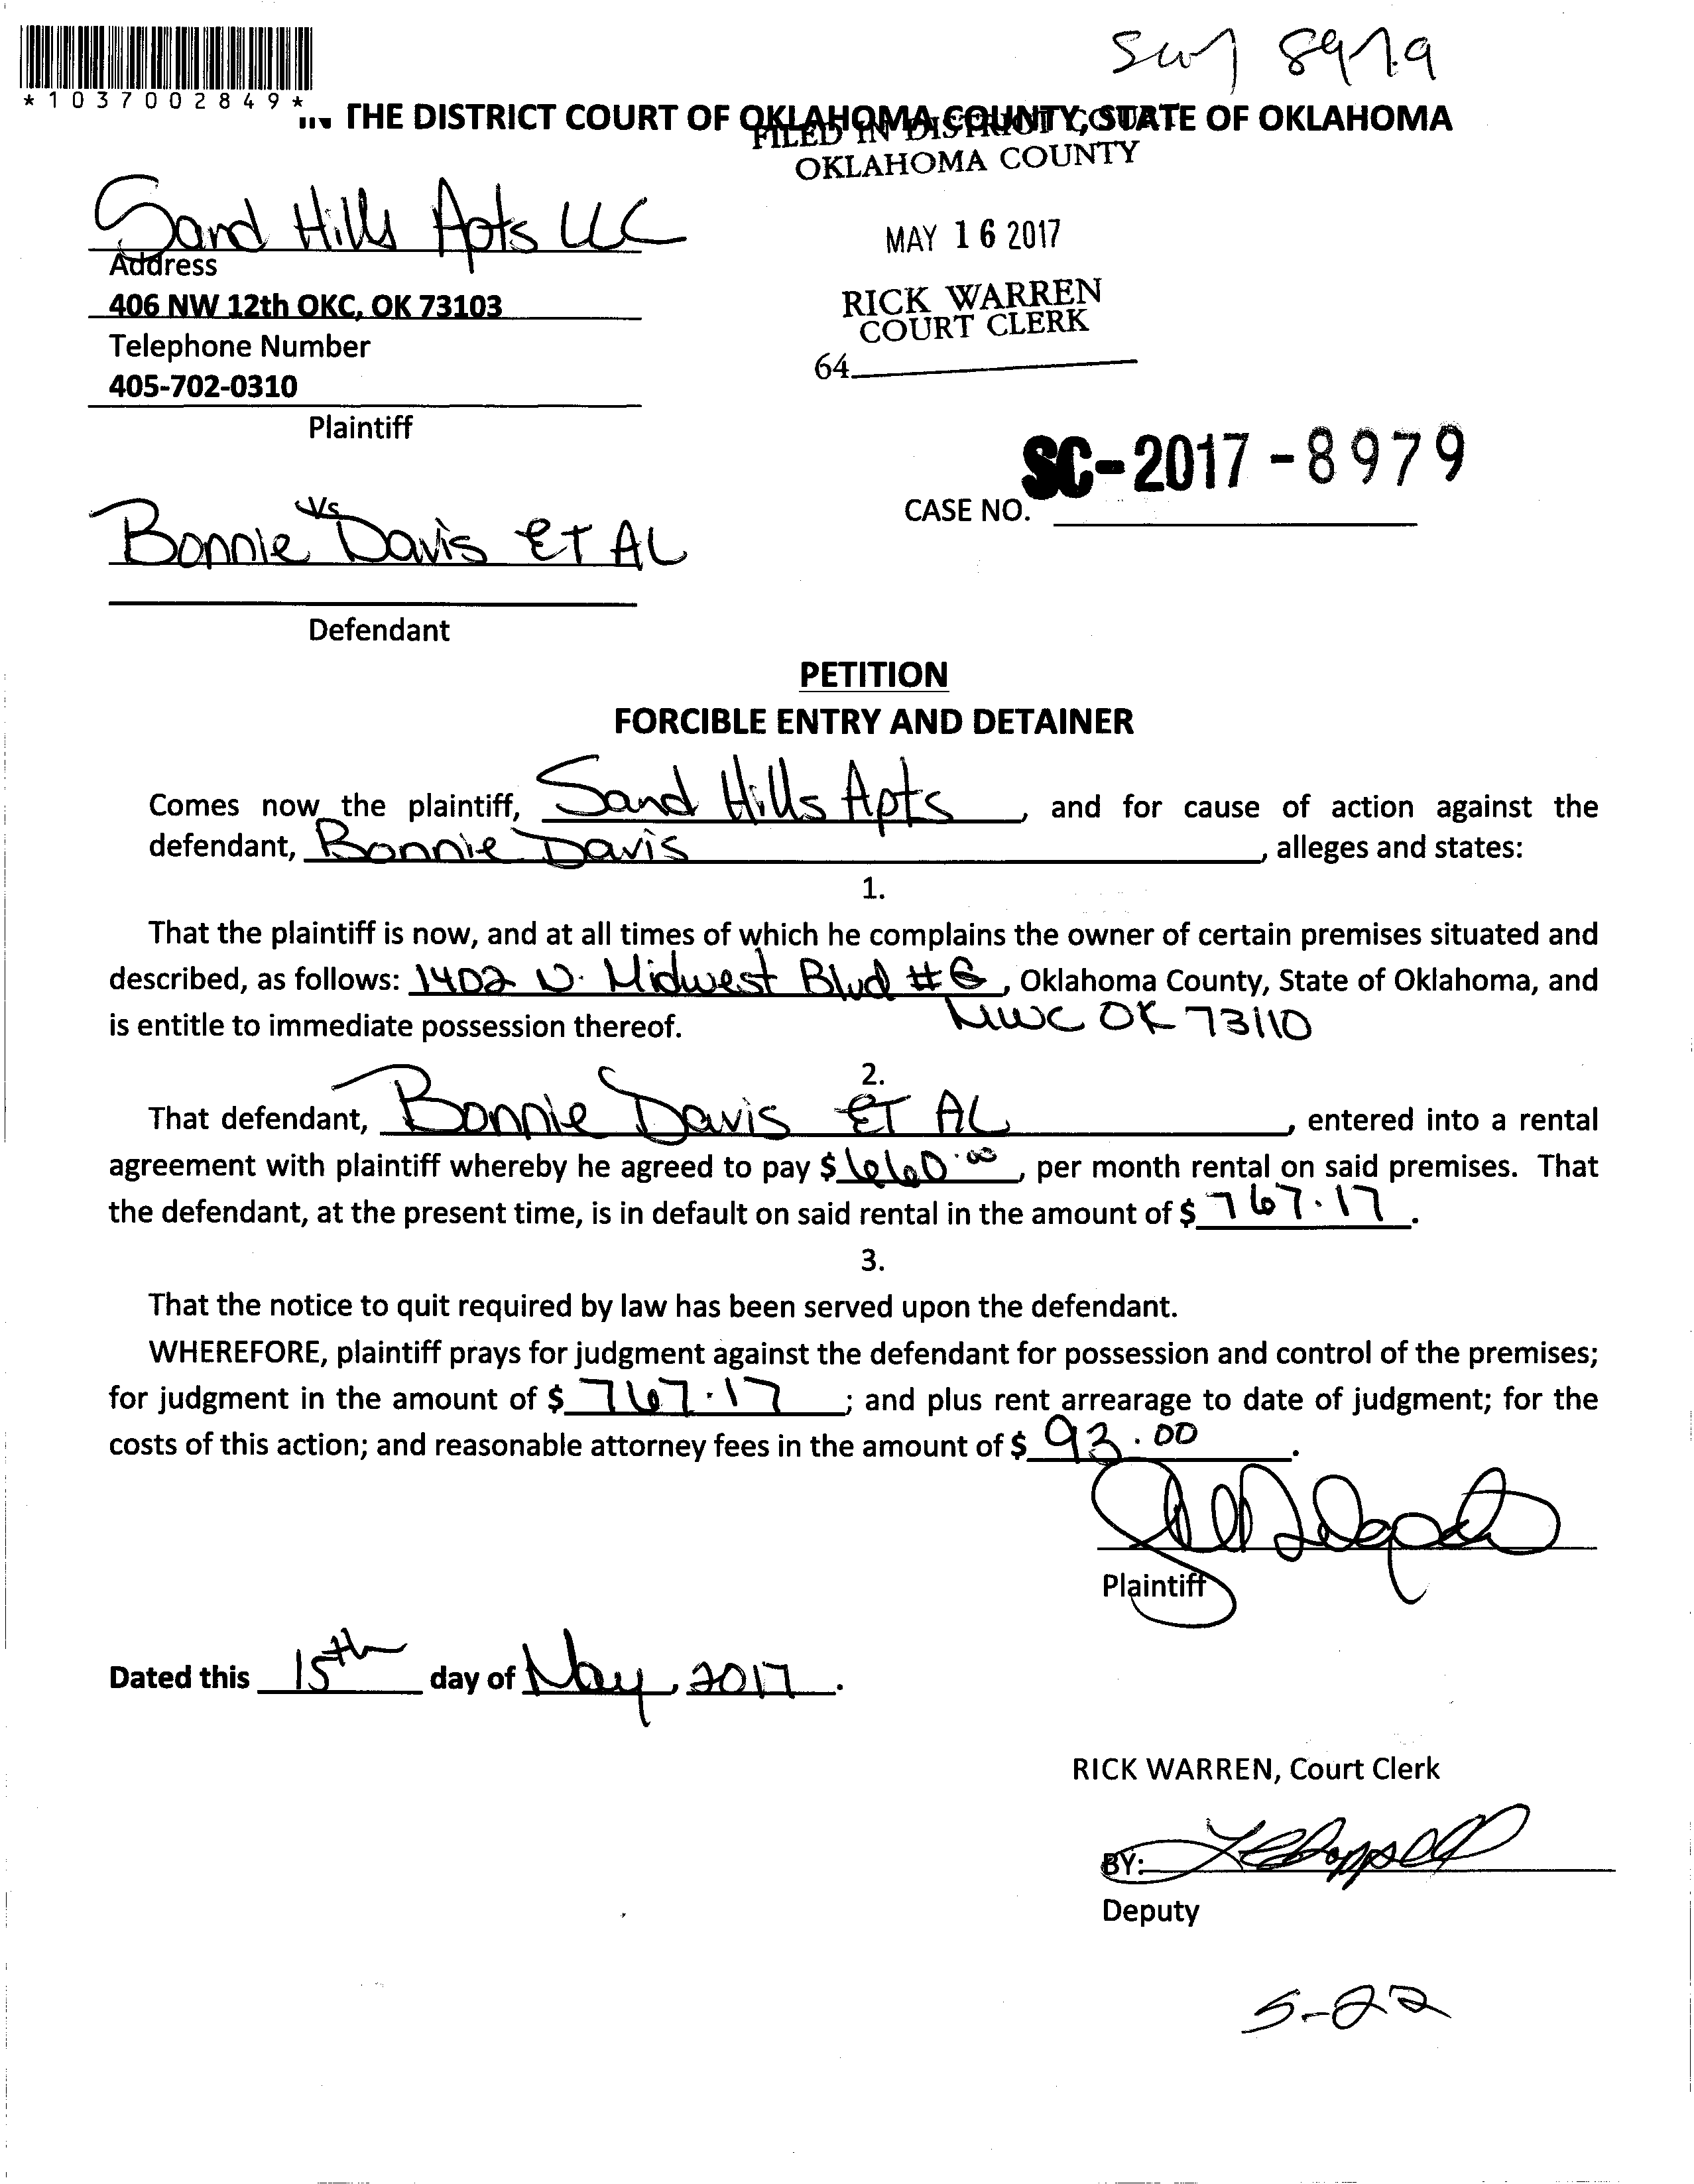 *1037002849*
IN THE DISTRICT COURT OF OKLAHOMA COUNTY, STATE OF OKLAHOMA
FILED IN DISTRICT COURT
OKLAHOMA COUNTY
Sand Hills Apts LLC
MAY 16 2017
Address
406 NW 12th OKC, OK 73103
RICK WARREN
COURT CLERK
Telephone Number
64
405-702-0310
Plaintiff
SC-2017-8979
CASE NO.
Vs
Bonnie Davis ET AL
Defendant
PETITION
FORCIBLE ENTRY AND DETAINER
Comes now the plaintiff, Sand Hills Apts, and for cause of action against the
defendant, Bonnie Davis, alleges and states:
1.
That the plaintiff is now, and at all times of which he complains the owner of certain premises situated and
described, as follows: 1402 N. Midwest Blvd #, Oklahoma County, State of Oklahoma, and
is entitle to immediate possession thereof. MWC OK 73110
2.
That defendant, Bonnie Davis ET AL, entered into a rental
agreement with plaintiff whereby he agreed to pay $660.00, per month rental on said premises. That
the defendant, at the present time, is in default on said rental in the amount of $767.17.
3.
That the notice to quit required by law has been served upon the defendant.
WHEREFORE, plaintiff prays for judgment against the defendant for possession and control of the premises;
for judgment in the amount of $767.17; and plus rent arrearage to date of judgment; for the
costs of this action; and reasonable attorney fees in the amount of $93.00.
Plaintiff
Dated this 15th day of May, 2017.
RICK WARREN, Court Clerk
BY:
Deputy
5-22